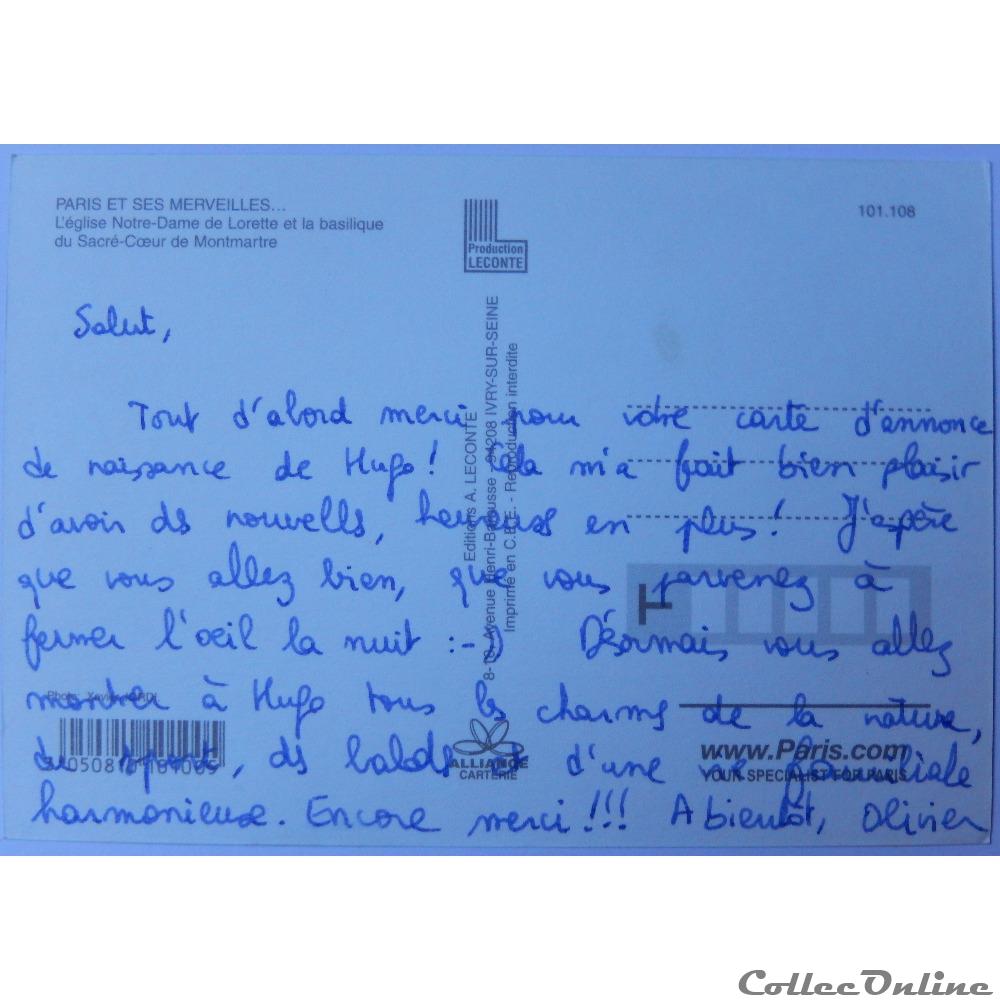 PARIS ET SES MERVEILLES...
L'église Notre-Dame de Lorette et la basilique
du Sacré-Cœur de Montmartre
Production
LECONTE
101.108
Salut,
Tout d'abord merci pour votre carte d'annonce
de naissance de Hugo! Cela m'a fait bien plaisir
d'avoir ds nouvells, heureuses en plus! J'espère
que vous allez bien, que vous parvenez à
fermer l'oeil la nuit :-) Désormais vous allez
montrer à Hugo tous ls charms de la nature,
du sport, ds balads et d'une vie familiale
harmonieuse. Encore merci!!! A bientôt, Olivier
Editions A. LECONTE
8-10 Avenue Henri-Barbusse - 94208 IVRY-SUR-SEINE
Imprimé en C.E.E. - Reproduction interdite
Photo:
ALLIANCE
CARTERIE
www.Paris.com
YOUR SPECIALIST FOR PARIS
CollecOnline